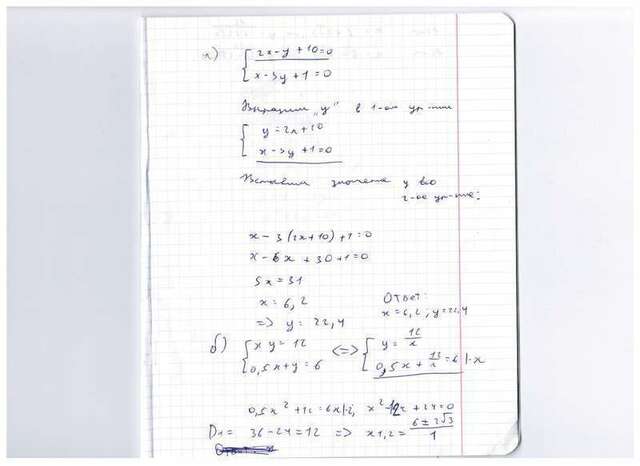 а)
{ 2x-y+10=0
{ x-3y+1=0
Выразим "y" в 1-ом ур-нии
{ y=2x+10
{ x-3y+1=0
Вставим значение y во
2-ое ур-ние:
x-3(2x+10)+1=0
x-6x+30+1=0
5x=31
x=6,2
=> y=22,4
Ответ:
x=6,2; y=22,4
б) { xy=12 <=> { y=12/x
{ 0,5x+y=6 { 0,5x+12/x=6 |·x
0,5x²+12=6x|·2; x²-12x+24=0
D₁= 36-24=12 => x1,2= (6±2√3)/1